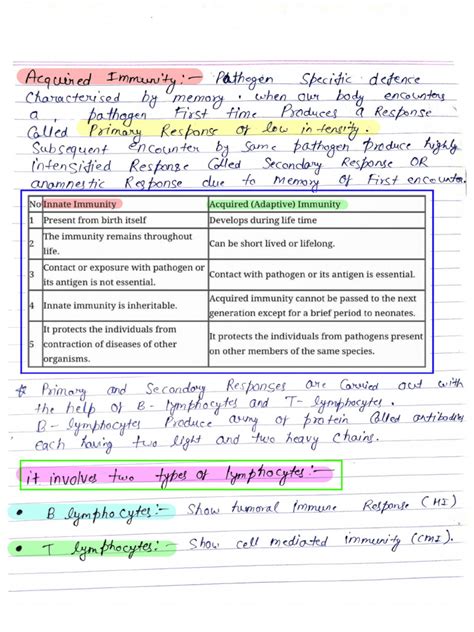 Acquired Immunity:- Pathogen Specific defence
Characterised by memory. when our body encounters
a, pathogen First time Produces a Response
Called Primary Response of low intensity.
Subsequent encounter by Same pathogen produce highly
intensified Response Called Secondary Response OR
anamnestic Response due to Memory of First encounter.
No Innate Immunity Acquired (Adaptive) Immunity
1 Present from birth itself Develops during life time
2 The immunity remains throughout life. Can be short lived or lifelong.
3 Contact or exposure with pathogen or its antigen is not essential. Contact with pathogen or its antigen is essential.
4 Innate immunity is inheritable. Acquired immunity cannot be passed to the next generation except for a brief period to neonates.
5 It protects the individuals from contraction of diseases of other organisms. It protects the individuals from pathogens present on other members of the same species.
* Primary and Secondary Responses are Carried out with
the help of B- lymphocytes and T- lymphocytes.
B- lymphocytes Produce array of protein Called antibodies
each having two light and two heavy chains.
it involves two types of lymphocytes:-
• B lymphocytes:- Show tumoral Immune Response (HI)
• T lymphocytes:- Show cell mediated immunity (CMI).